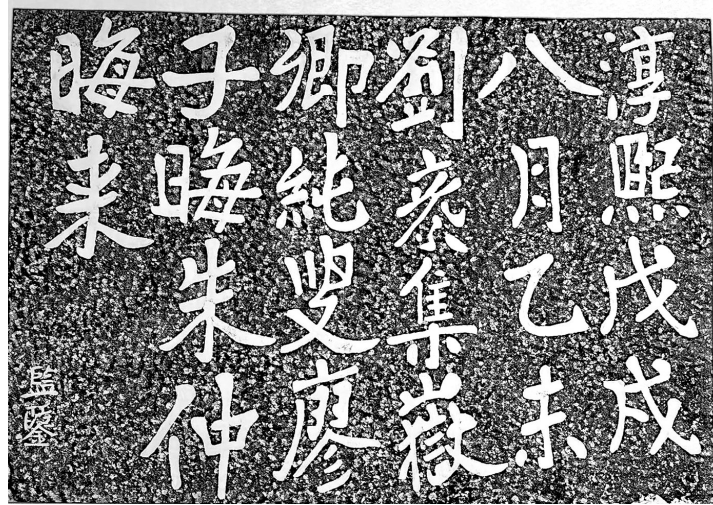 淳熙戊戌
八月乙未
劉彦集嶽
卿純叟廖
子晦朱仲
晦来